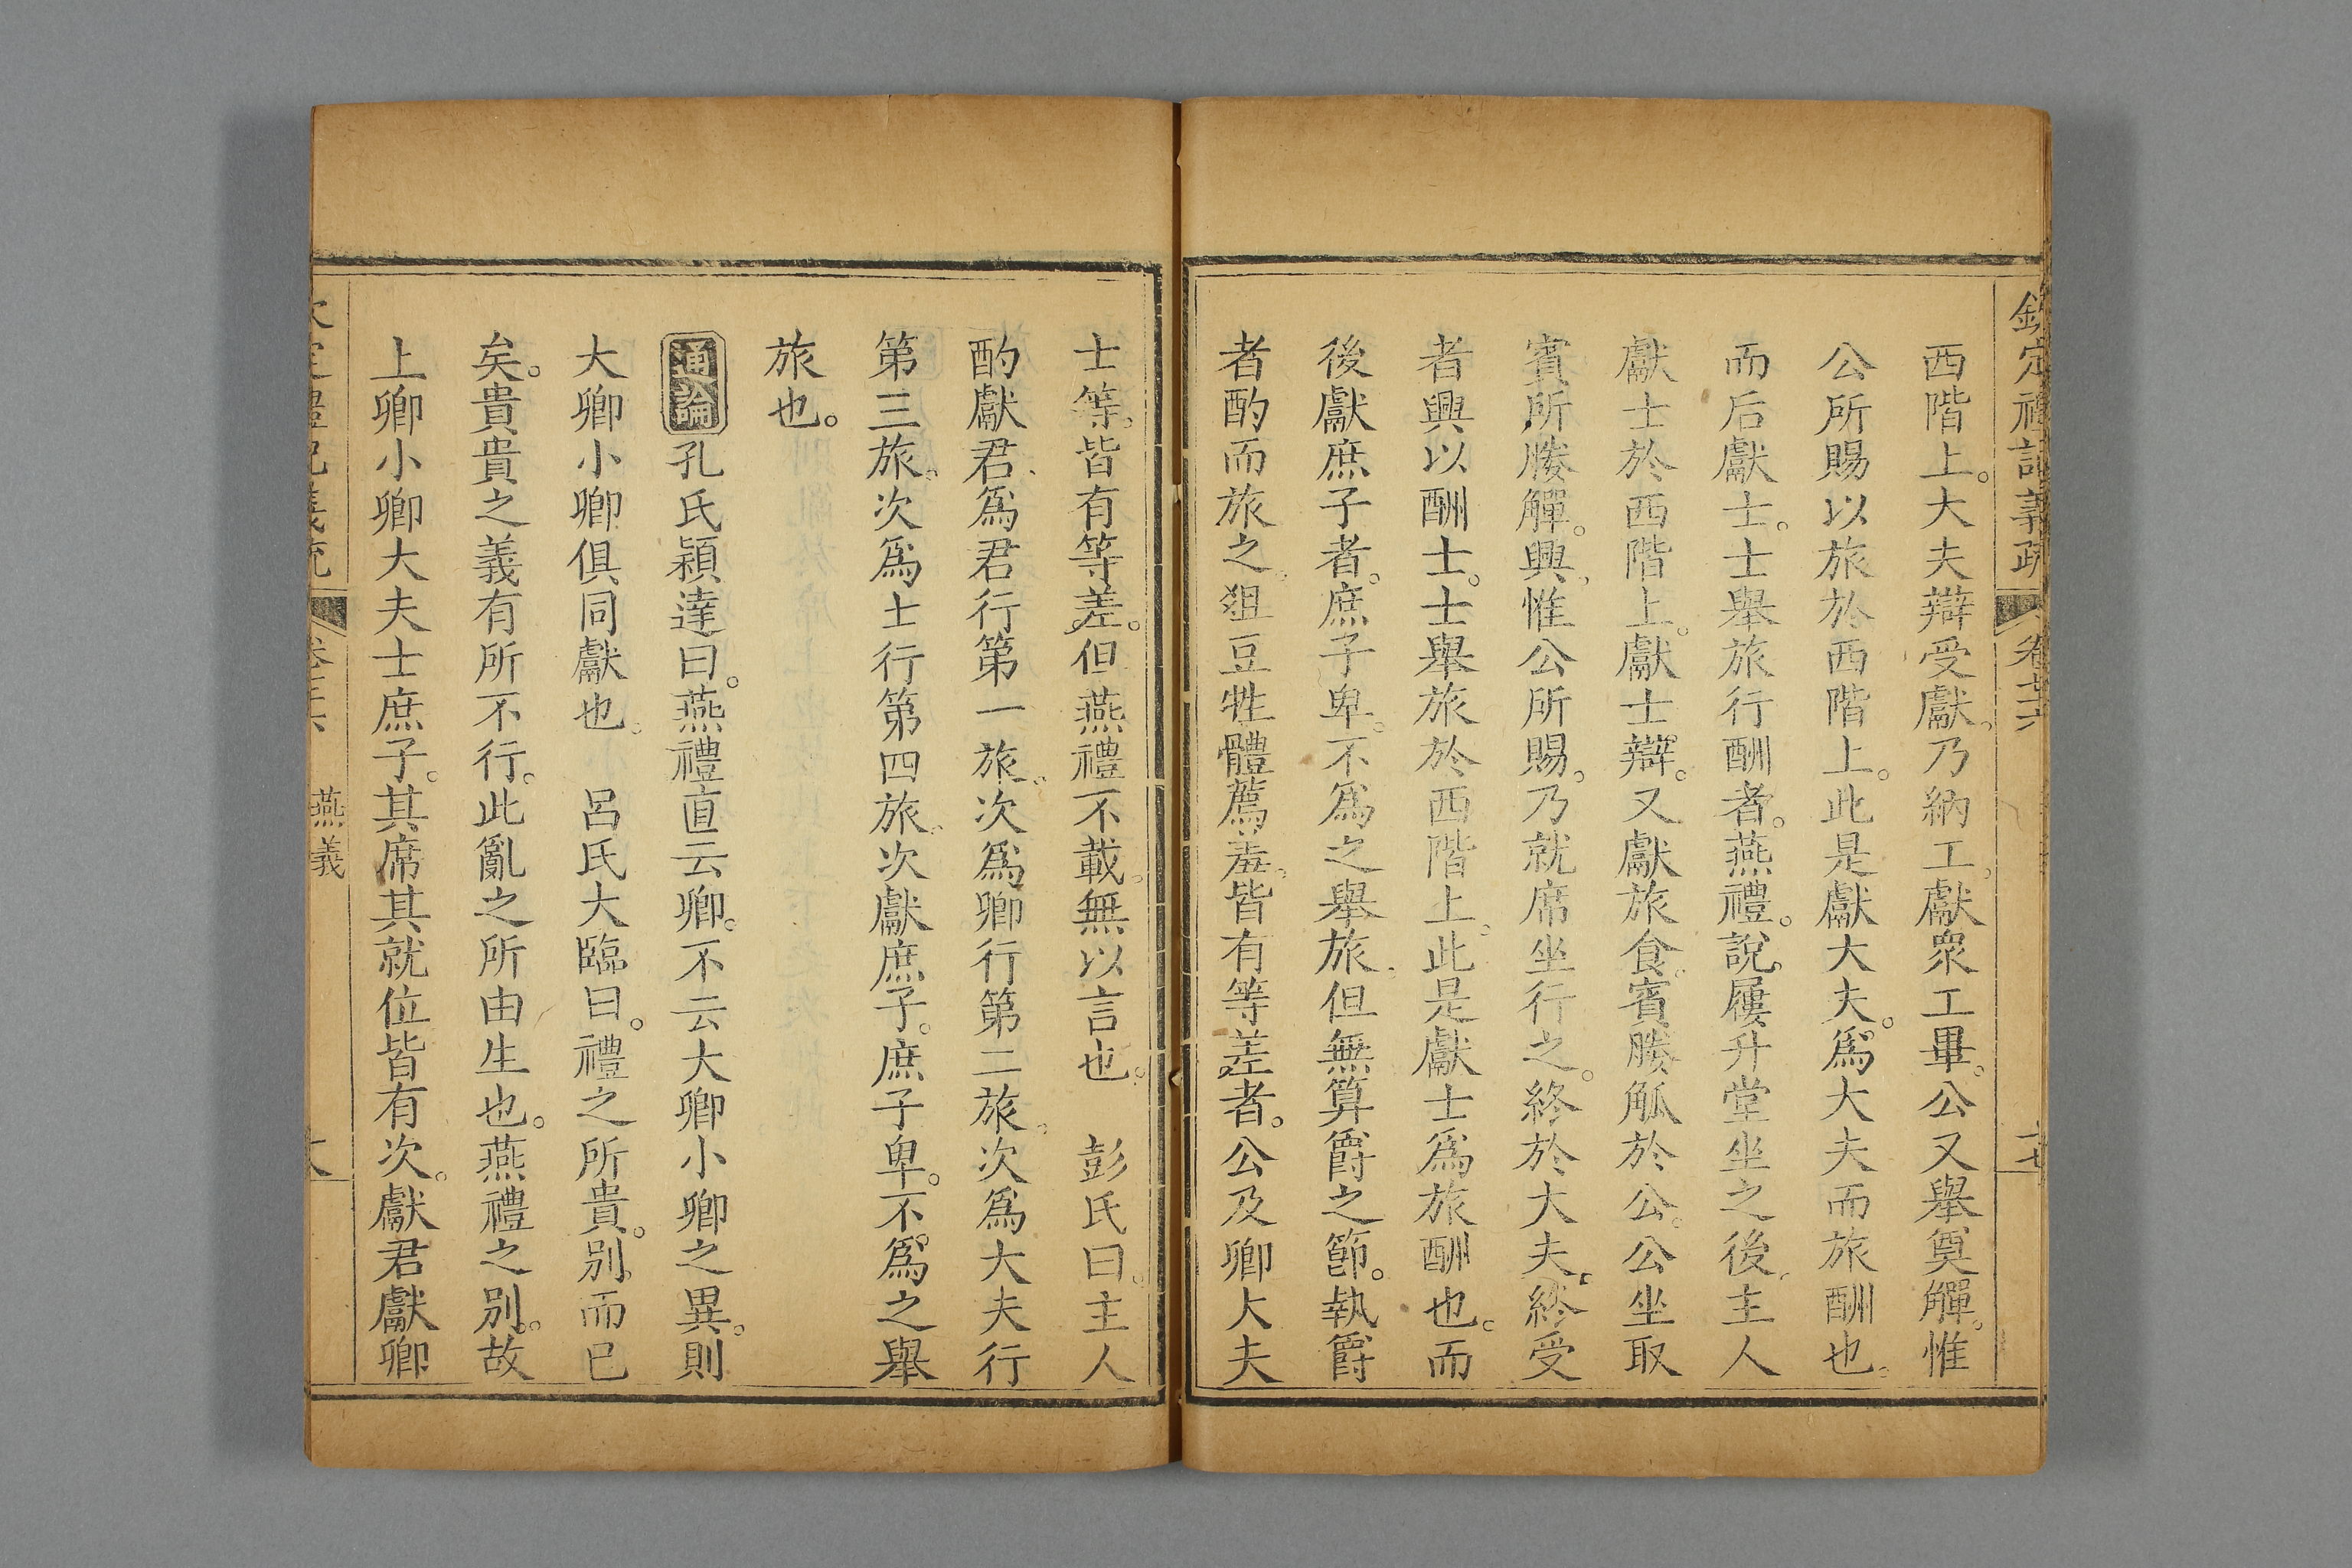 欽定禮記義疏 卷七十六 十七
西階上。大夫辯受獻。乃納工。獻衆工畢。公又舉奠觶。惟
公所賜以旅於西階上。此是獻大夫。爲大夫而旅酬也。
而后獻士。士舉旅行酬者。燕禮。說屨升堂坐之後。主人
獻士於西階上。獻士辯。又獻旅食。賓媵觚於公。公坐取
賓所媵觶。興。惟公所賜。乃就席坐行之。終於大夫。終受
者興以酬士。士舉旅於西階上。此是獻士爲旅酬也。而
後獻庶子者。庶子卑。不爲之舉旅。但無算爵之節。執爵
者酌而旅之。狙豆牲體薦羞。皆有等差者。公及卿大夫
士等。皆有等差。但燕禮不載。無以言也。 彭氏曰。主人
酌獻君。爲君行第一旅。次爲卿行第二旅。次爲大夫行
第三旅。次爲士行第四旅。次獻庶子。庶子卑。不爲之舉
旅也。
通論 孔氏穎達曰。燕禮直云卿。不云大卿小卿之異。則
大卿小卿俱同獻也。 呂氏大臨曰。禮之所貴。別而已
矣。貴貴之義有所不行。此亂之所由生也。燕禮之別。故
上卿小卿大夫士庶子。其席其就位皆有次。獻君獻卿
燕義